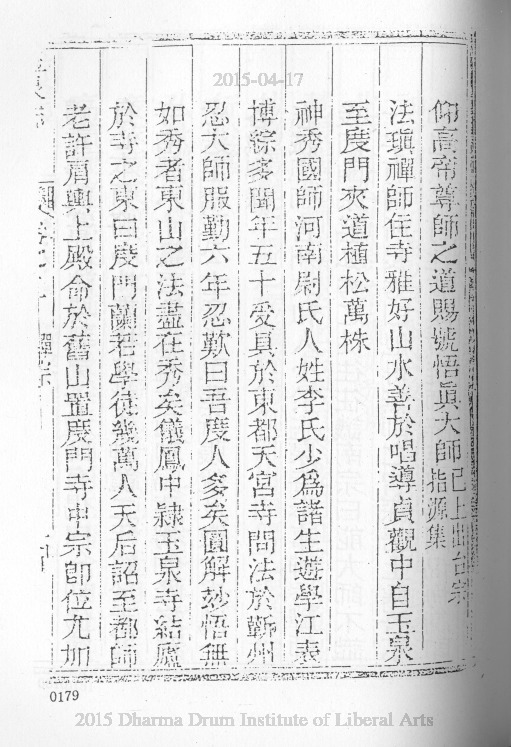 2015-04-17
仰高帝尊師之道賜號悟眞大師已上出台宗指源集
法瑱禪師住寺雅好山水善於唱導貞觀中自玉泉
至度門夾道植松萬株
神秀國師河南尉氏人姓李氏少爲諸生遊學江表
博綜多聞年五十受具於東都天宮寺問法於蘄州
忍大師服勤六年忍歎曰吾度人多矣圓解妙悟無
如秀者東山之法盡在秀矣儀鳳中隷玉泉寺結廬
於寺之東曰度門蘭若學徒幾萬人天后詔至都師
老許肩輿上殿命於舊山置度門寺中宗卽位尤加
0179
2015 Dharma Drum Institute of Liberal Arts